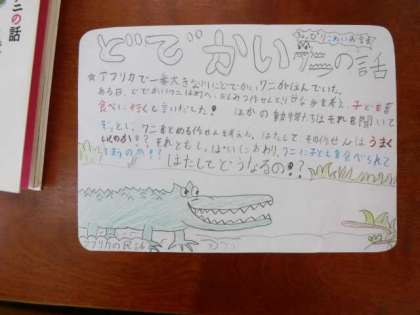 ワニの話
どでかいワニの話
☆アフリカで一番大きな川にどでかいワニがすんでいた。
ある日、どでかいワニは ひみつ作せんと 考え、子どもを
食べに行くと言いだした! ほかの動物たちはそれを聞いて
ぞっとし、ワニをとめる作せんを考えた。はたしてその作せんはうまく
いくのか!? それとも ワニに子どもを食べられて
しまうのか!?
はたしてどうなるの!?
アフリカの